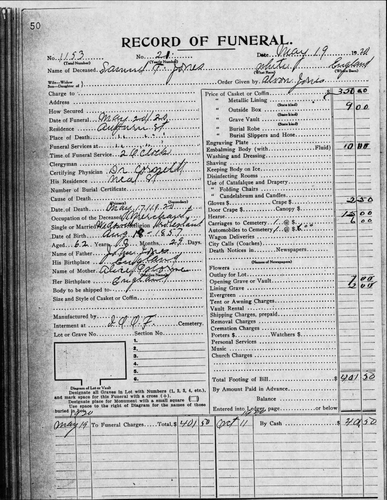 50
RECORD OF FUNERAL.
No. 1153 No. 20 Date May 19 1920
(Total Number) (Yearly Number)
Name of Deceased Samuel Jones White England
(What Race) (Where Born)
Wife—Widow
Son—Daughter of
Order Given by Jones
Charge to
Address
How Secured
Date of Funeral May 20/20
Residence Auburn St
Place of Death " " "
Funeral Services at " " "
Time of Funeral Service 2 O'Clock
Clergyman
Certifying Physician Dr
His Residence Neal St
Number of Burial Certificate
Cause of Death
Date of Death May 17 1920
Occupation of the Deceased Merchant
Single or Married
Date of Birth Aug 1857
Aged 62 Years, 8 Months, 29 Days.
Name of Father John Jones
His Birthplace England
Name of Mother Alice Osborne
Her Birthplace England
Body to be shipped to
Size and Style of Casket or Coffin
Manufactured by
Interment at I.O.O.F. Cemetery.
Lot or Grave No. Section No.
1.
2.
3.
4.
5.
6.
Diagram of Lot or Vault
Designate all Graves in Lot with Numbers (1, 2, 3, 4, etc.),
and mark space for this Funeral with a cross (x)
Designate place for Monument with a small square
Use space to right of Diagram for the names of those
buried in Lot.
Price of Casket or Coffin $350.00
" Metallic Lining
(State kind)
" Outside Box 9 00
(State kind)
" Grave Vault
(State kind)
" Burial Robe
(State kind)
" Burial Slippers and Hose
Engraving Plate
Embalming Body (with Fluid) 10 00
Washing and Dressing
Shaving
Keeping Body on Ice
Disinfecting Rooms
Use of Catafalque and Drapery
" Folding Chairs
" Candelabrum and Candles
Gloves $ Crape $ 2 50
Door Crape Candles $
Hearse 15 00
Carriages to Cemetery 1 @ $ 6 00
Automobiles to Cemetery 1 @ $
Wagon Deliveries
City Calls (Coaches)
Death Notices in Newspapers
(Names of Newspapers)
Flowers
Outlay for Lot
Opening Grave or Vault 7 00
Lining Grave 2 00
Evergreen
Tent or Awning Charges
Vault Rental
Shipping Charges, prepaid
Removal Charges
Cremation Charges
Porters $ Watchers $
Personal Services
Music
Church Charges
Total Footing of Bill $401 50
By Amount Paid in Advance
Balance
Entered into Ledger, page or below
1920
May 19 To Funeral Charges, Total $ 401 50 Oct 11 By Cash $ 401 50